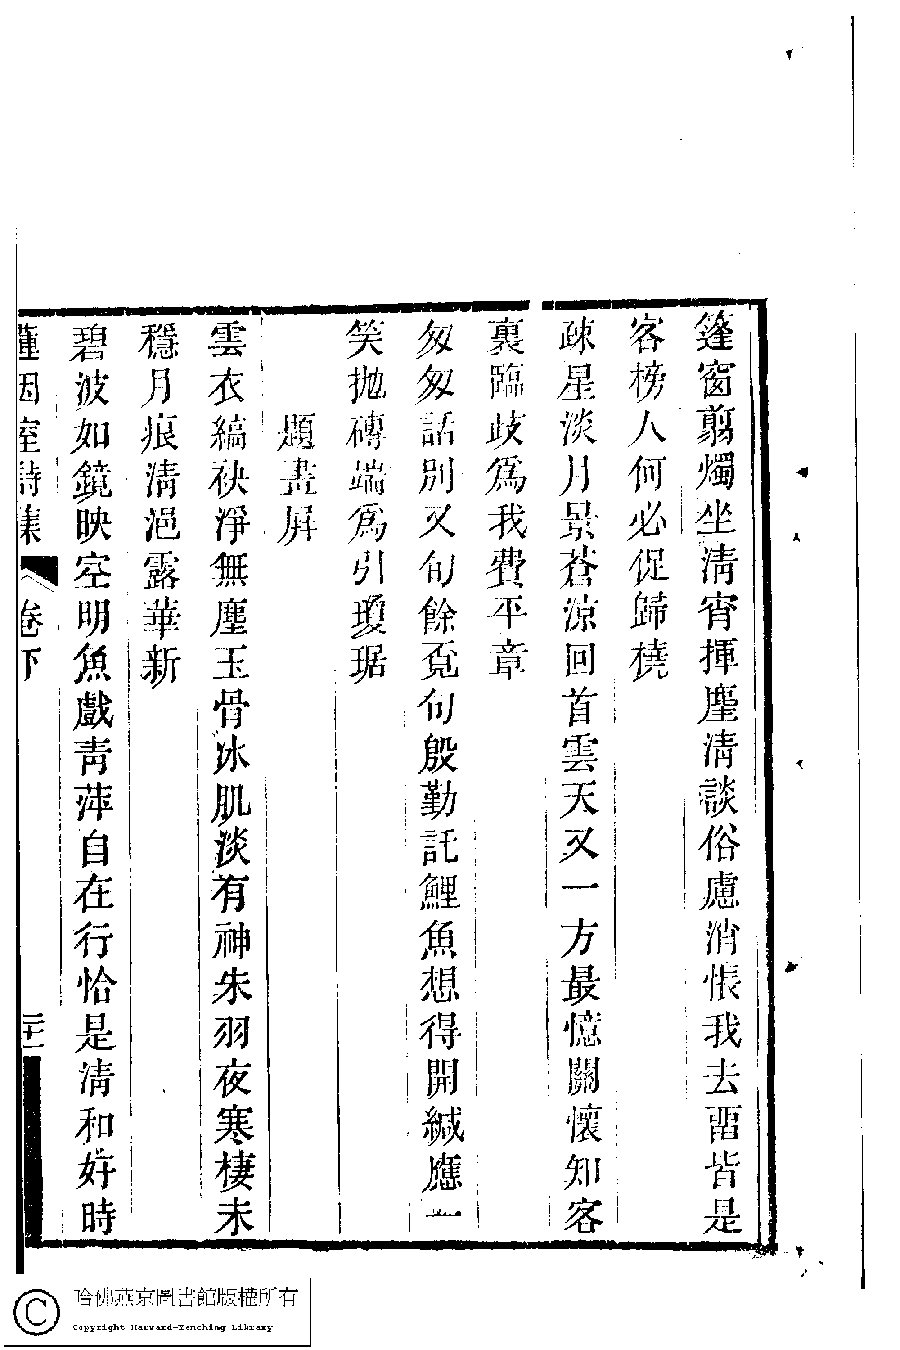 篷窗剪燭坐清宵揮麈清談俗慮消悵我去畱皆是
客榜人何必促歸橈
疎星淡月景蒼涼回首雲天又一方最憶關懷知客
裏臨歧爲我費平章
匆匆話別又旬餘覓句殷勤託鯉魚想得開緘應一
笑拋磚端爲引瓊琚
題畫屏
雲衣縞袂淨無塵玉骨冰肌淡有神朱羽夜寒棲未
穩月痕清浥露華新
碧波如鏡映空明魚戲青萍自在行恰是清和好時
因室詩集
卷下
二十一
哈佛燕京圖書館版權所有
Copyright Harvard-Yenching Library